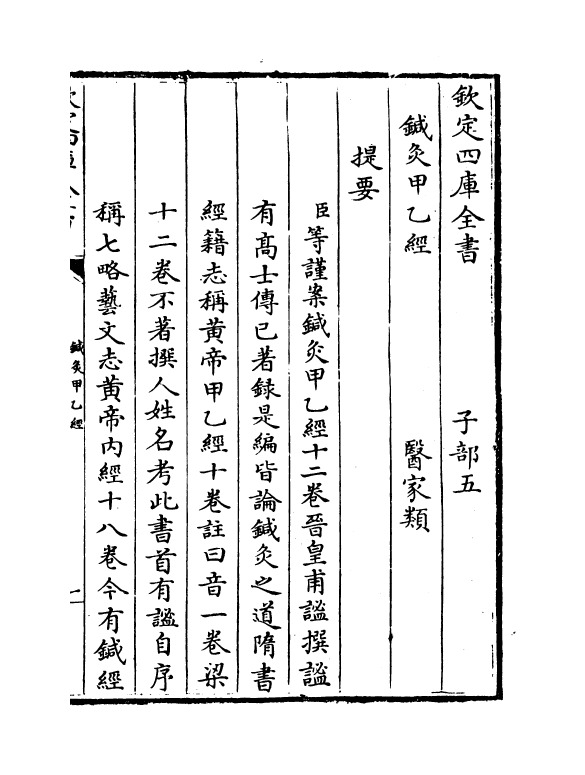 欽定四庫全書　子部五
鍼灸甲乙經　醫家類
提要
臣等謹案鍼灸甲乙經十二卷晉皇甫謐撰謐
有髙士傳已著録是編皆論鍼灸之道隋書
經籍志稱黄帝甲乙經十卷註曰音一卷梁
十二卷不著撰人姓名考此書首有謐自序
稱七略藝文志黄帝内經十八卷今有鍼經
鍼灸甲乙經